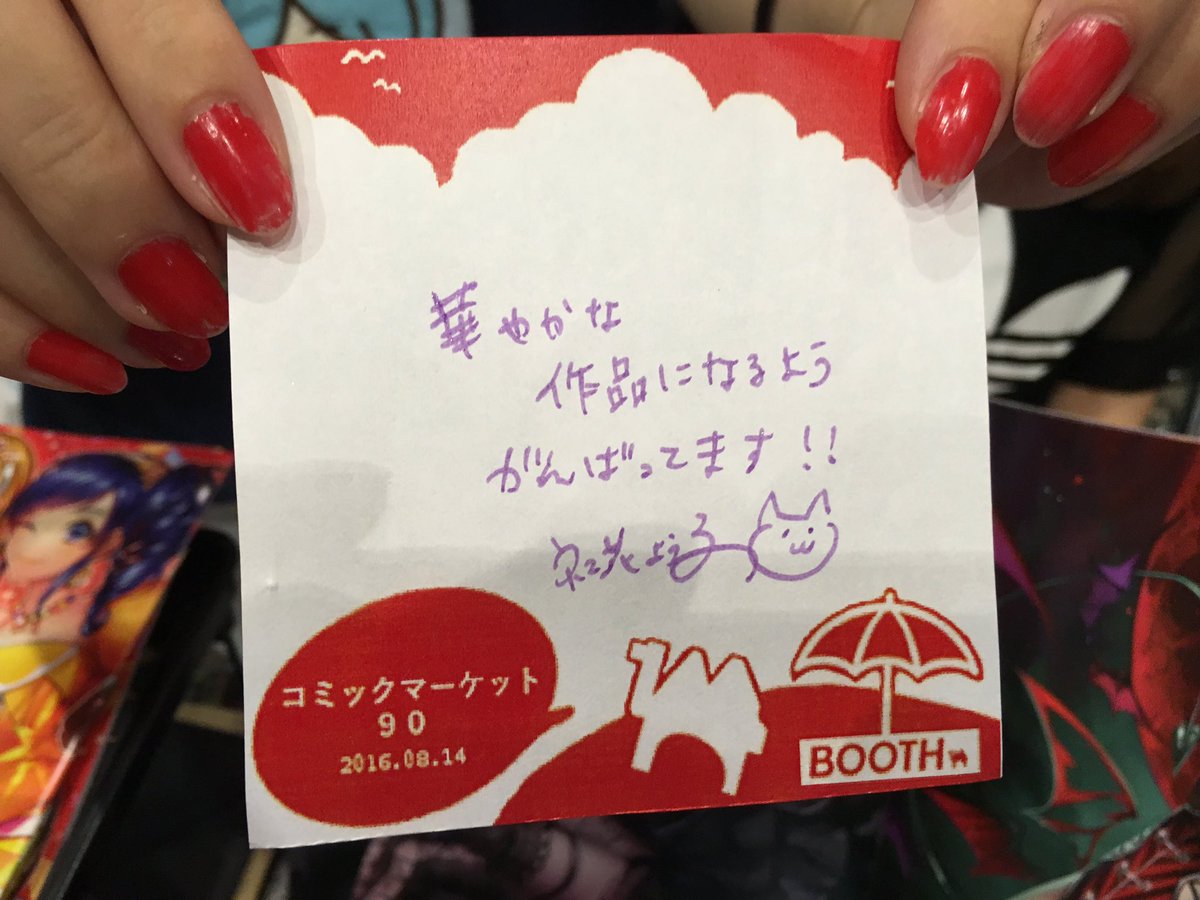 華やかな
作品になるよう
がんばってます!!
コミックマーケット
90
2016.08.14
BOOTH